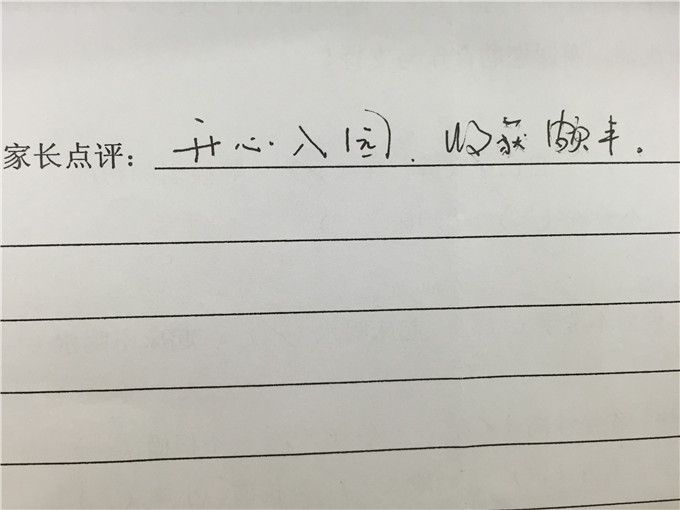 家长点评：开心入园，收获颇丰。